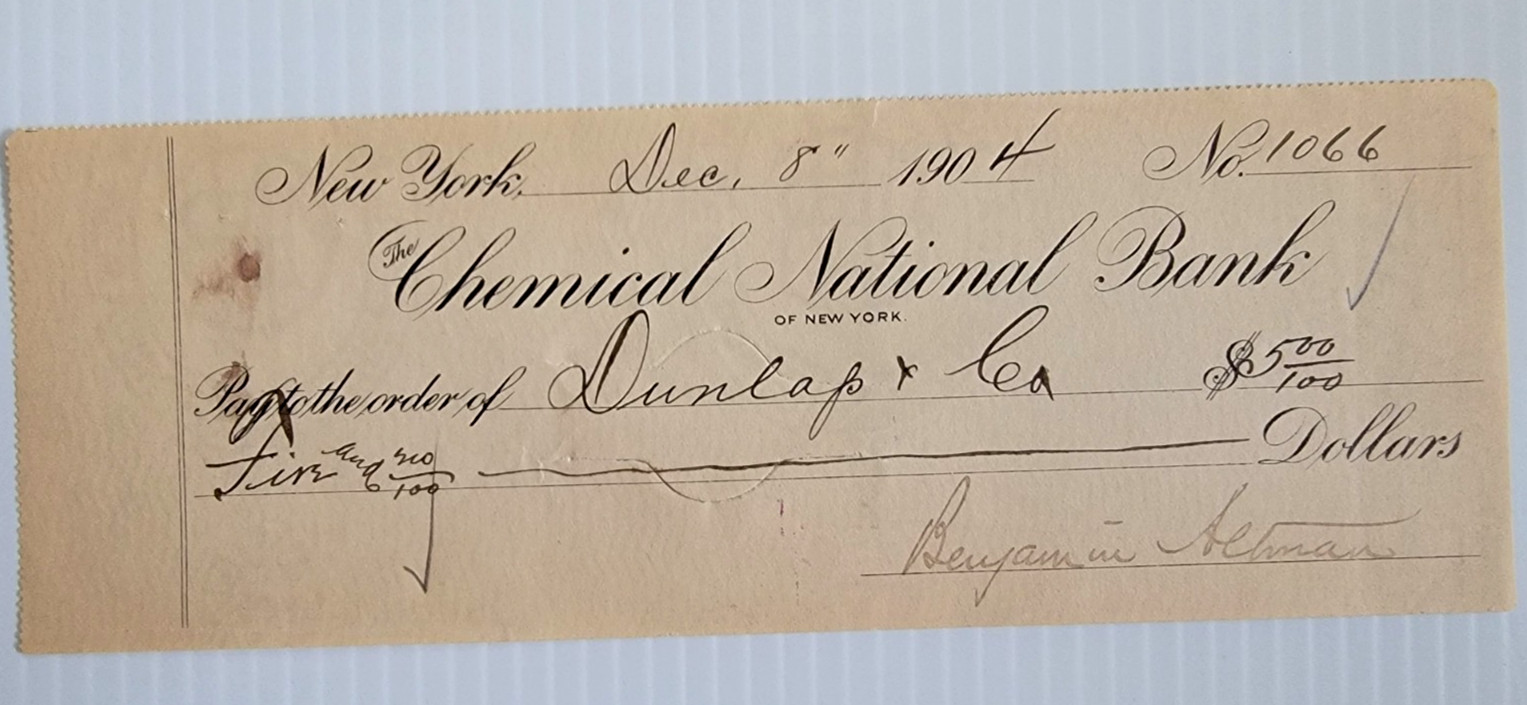 New York, Dec. 8" 1904 No. 1066
The Chemical National Bank
OF NEW YORK.
Pay to the order of Dunlap & Co $5 00/100
Five and no/100 Dollars
Benjamin Altman